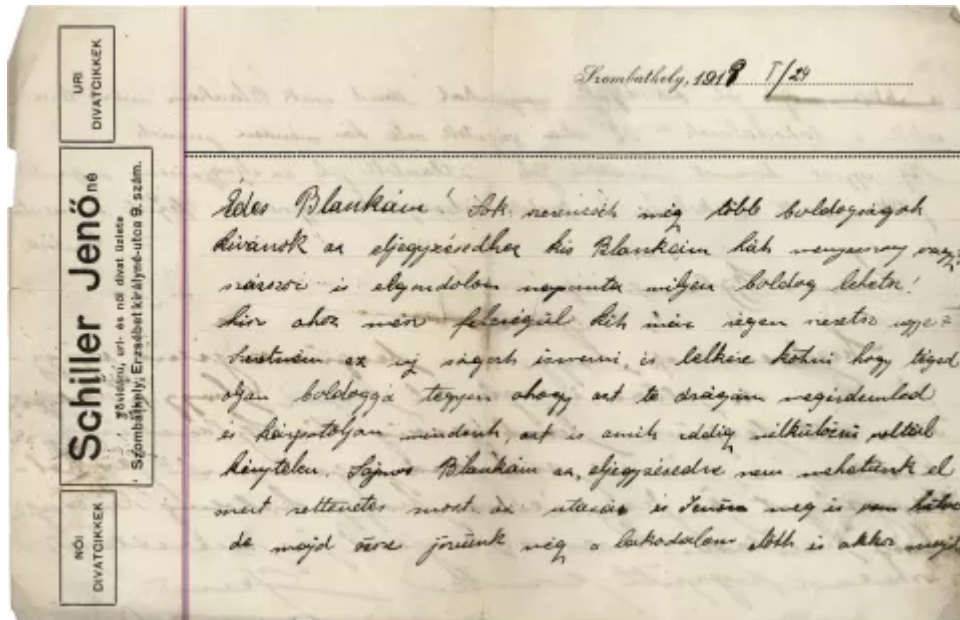 URI
DIVATCIKKEK
Schiller Jenőné
rövidáru, uri- és női divat üzlete
Szombathely, Erzsébet királyné-utca 9. szám.
NŐI
DIVATCIKKEK
Szombathely, 1918 I/24
Édes Blankám! Sok szerencsét még több boldogságot
kivánok az eljegyzésedhez kis Blankám hát menyasszony vagy
is elgondolom milyen boldog lehetsz!
hisz ahoz mész feleségül kit már régen szeretsz ugye?
Szeretném az uj ismerni, és lelkére kötni hogy téged
oljan boldoggá tegyen ahogy azt te drágám megérdemled
és kárpótoljon mindenért, azt is amit eddig nélkülözni voltál
kénytelen. Sajnos Blankám az eljegyzésedre nem mehetünk el
mert rettenetes most az utazás és Jenőm meg is van
de majd jövünk még a lakodalom előtt és akkor majd